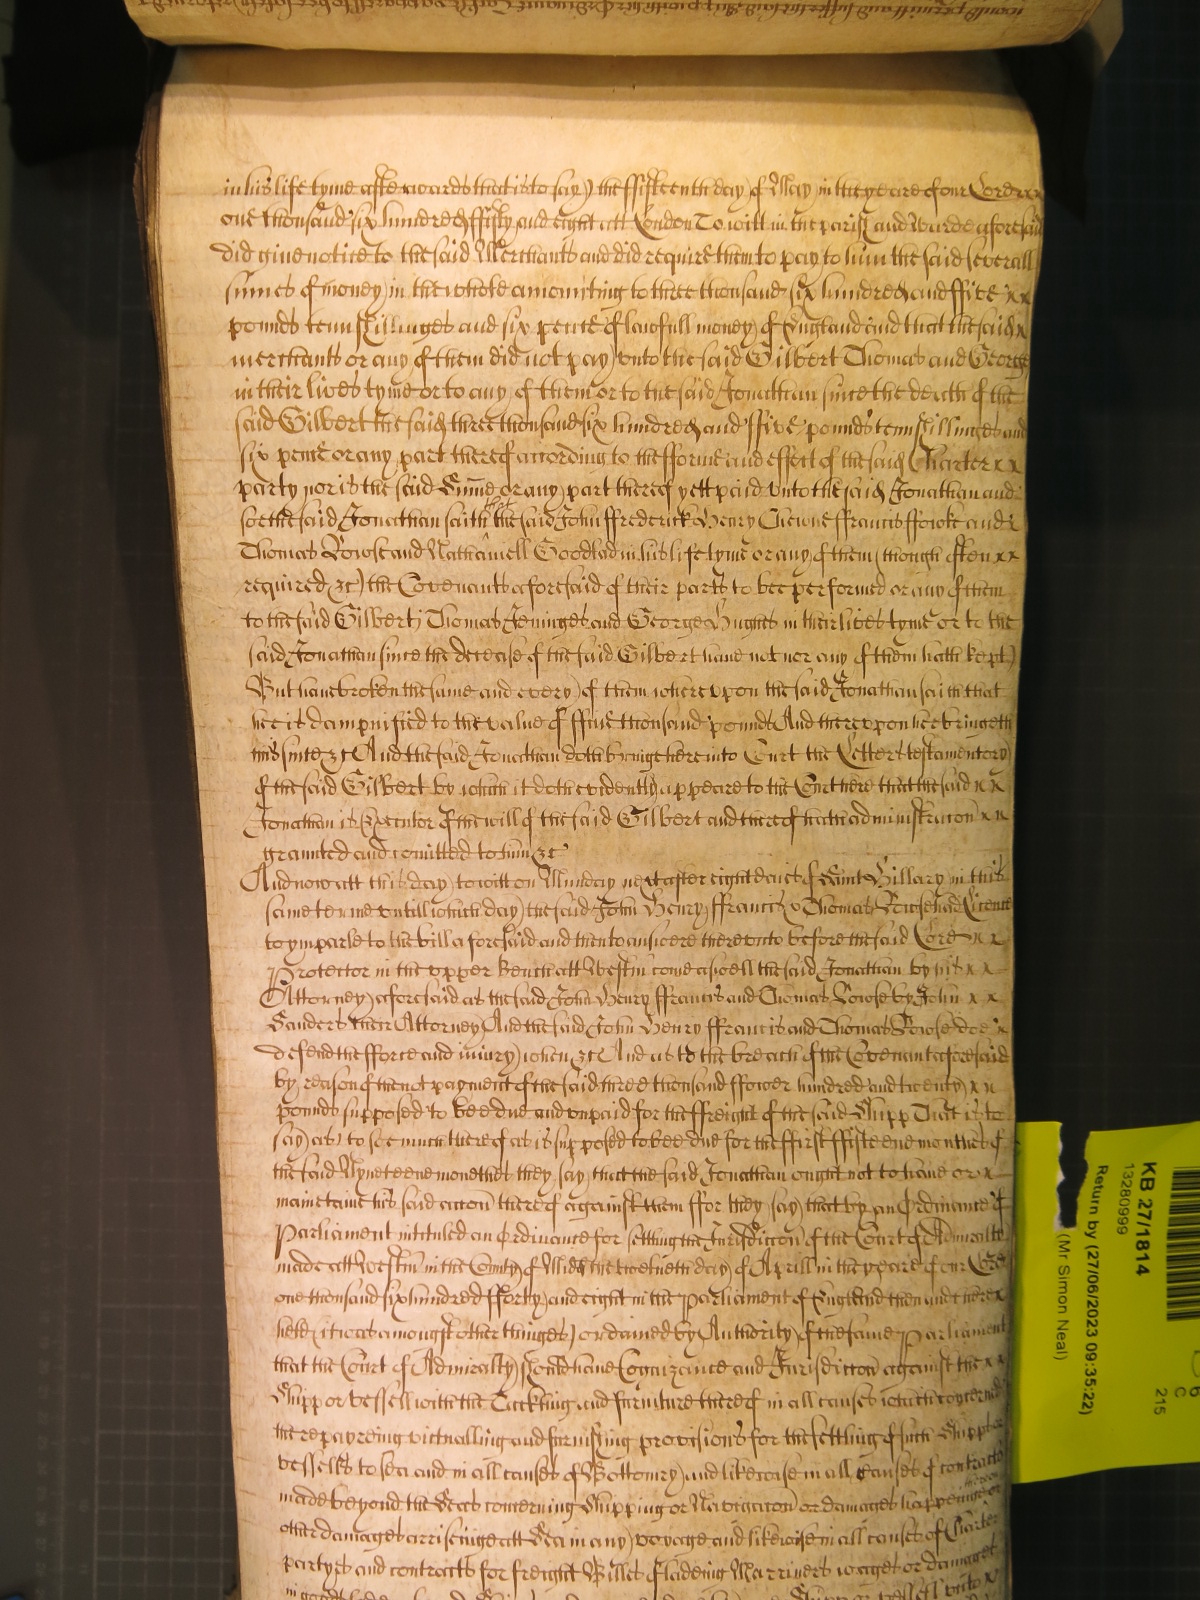 in his life tyme afterwards that is to say) the ffifteenth day of May in the yeare of our Lord x x
one thousand six hundred ffifty and eight att London To witt in the parish and Warde aforesaid
did give notice to the said Merchants and did require them to pay to him the said severall
summes of money in the whole amounting to three thousand six hundred and ffive x x
pounds tenn shillinges and six pence of lawfull money of England And that the said x
merchants or any of them did not pay unto the said Gilbert Thomas and George
in their lives tyme or to any of them or to the said Jonathan since the death of the
said Gilbert the said three thousand six hundred and ffive pounds tenn shillinges and
six pence or any part thereof according to the fforme and effect of the said Charter x x
party nor is the said Summe or any part thereof yett paid unto the said Jonathan and
soe the said Jonathan saith that the said John ffrederick Henry Chowne ffrancis ffowke and
Thomas Rowse and Nathaniell Goodlad in his life tyme or any of them (though often x x
required &c) the Covenants aforesaid of their parts to bee performed or any of them
to the said Gilbert Thomas Jeninges and George Hughes in their lives tyme or to the
said Jonathan since the decease of the said Gilbert have not nor any of them hath kept)
But have broken the same and every of them whereupon the said Jonathan saith that
hee is dampnified to the value of ffive thousand pounds And thereupon hee bringeth
this suite &c And the said Jonathan doth bringe here into Court the Letters testamentory
of the said Gilbert by which it doth evidently appeare to the Court here that the said x x
Jonathan is Executor of the will of the said Gilbert and thereof hath administracon x x
graunted and comitted to him &c
And now att this day to witt on Munday next after eight daies of Saint Hillary in this
same terme untill which day the said John Henry ffrancis & Thomas Rowse had Licence
to ymparle to the bill aforesaid and then to answere thereunto before the said Lord x x
Protector in the upper Bench att Westm come aswell the said Jonathan by his x x
Attorney aforesaid as the said John Henry ffrancis and Thomas Rowse by John x x
Sanders their Attorney And the said John Henry ffrancis and Thomas Rowse doe x
defend the fforce and injury when &c And as to the breach of the Covenant aforesaid
by reason of the not payment of the said three thousand ffower hundred and twenty x x
pounds supposed to bee due and unpaid for the ffreight of the said Shipp That is to
say as to soe much thereof as is supposed to bee due for the ffirst ffifteene monthes of
the said Nyneteene monethes they say that the said Jonathan ought not to have or x
mainetaine his said accon thereof against them ffor they say that by an Ordinance of
Parliament intituled an Ordinance for setling the Jurisdiccon of the Court of Admiralty
made att Westm in the County of Midd the twelveth day of Aprill in the yeare of our Lord
one thousand six hundred fforty and eight in the Parliament of England then and there x
held it was amongst other thinges ordained by Authority of the same Parliament
that the Court of Admiralty should have Cognizance and Jurisdiccon against the x x
Shipp or vessell with the Tackling and furniture thereof in all causes which concerne
the repayreing victualling and furnishing provisions for the setting of such Shipps or
vessells to sea and in all causes of Bottomry and likewise in all Causes of contracts
made beyond the Seas concerning Shipping or Navigacon or damages happening or
other damages arriseinge att Sea in any voyage and likewise in all causes of Charter
partyes and contracts for freight Billes of ladeing Marriners wages or damages
KB 27/1814
13280999
Return by (27/06/2023 09:35:22)
(Mr Simon Neal)
215